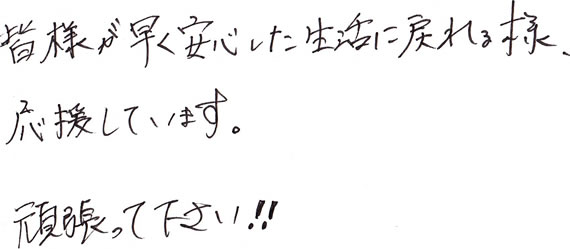 皆様が早く安心した生活に戻れる様、
応援しています。
頑張って下さい!!